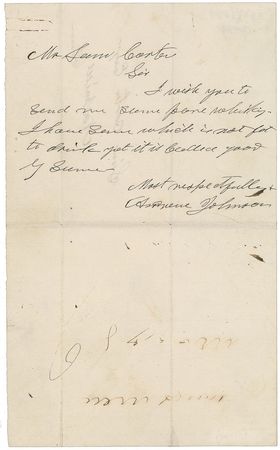 Mr Sam Carter
Sir
I wish you to
send me some pure whisky.
I have some which is not fit
to drink yet it is called good
by some
Most respectfully
Andrew Johnson